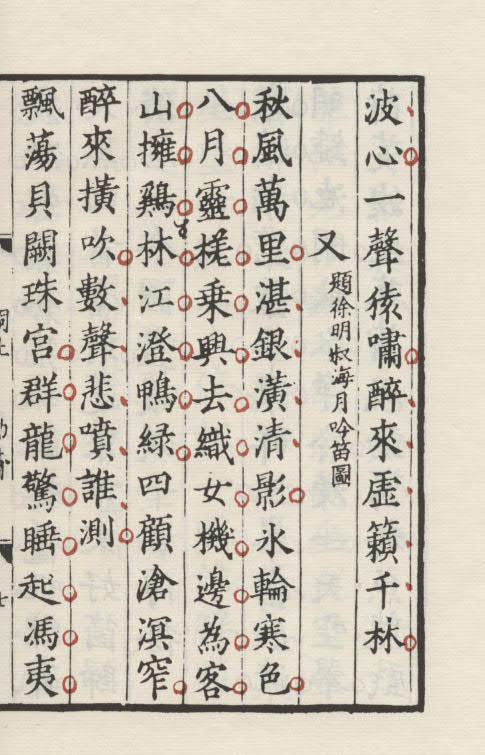 波心一聲猿嘯醉來虛籟千林
又 題徐明叔海月吟笛圖
秋風萬里湛銀潢清影氷輪寒色
八月靈槎乗興去織女機邊為客
山擁鷄林江澄鴨緑四顧滄溟窄
醉來撗吹數聲悲噴誰測
飄蕩貝闕珠宮群龍驚睡起馮夷